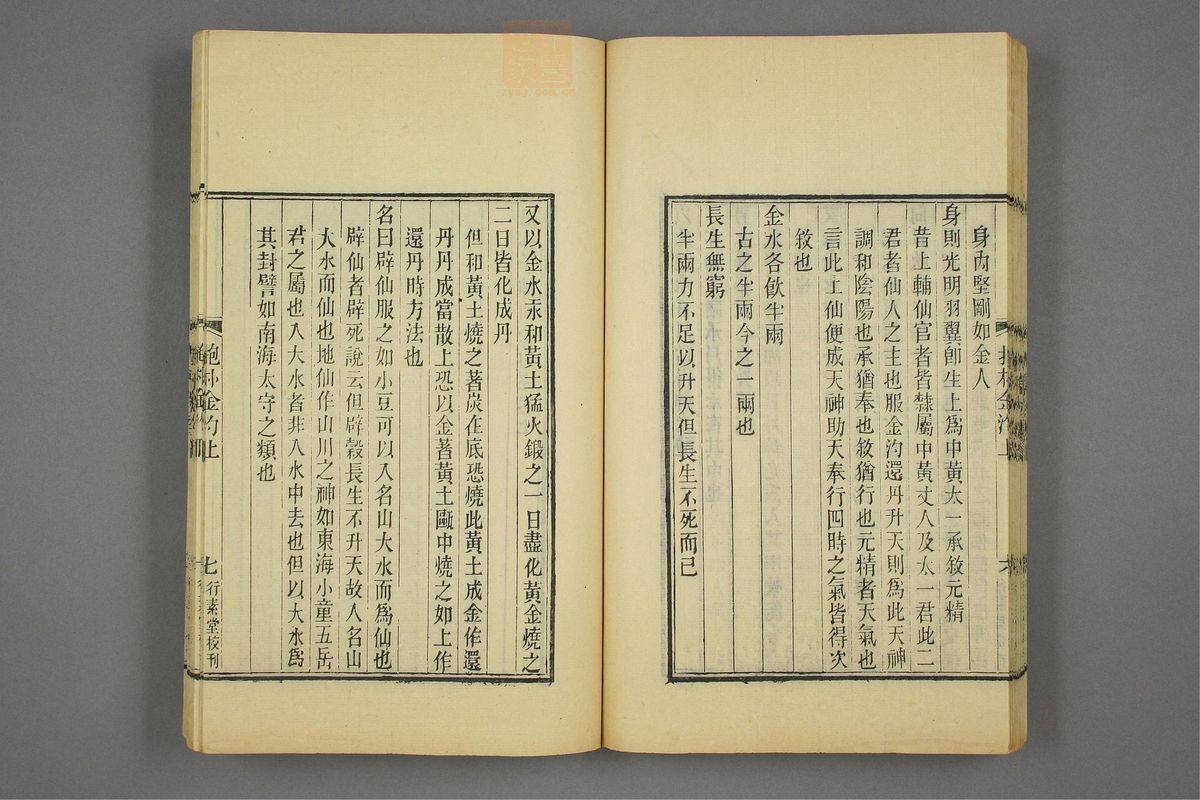 身內堅剛如金人
身則光明羽翼卽生上爲中黃太一承敘元精
昔上輔仙官者皆隸屬中黃丈人及太一君此二
君者仙人之主也服金汋還丹升天則爲此天神
調和陰陽也承猶奉也敘猶行也元精者天氣也
言此上仙便成天神助天奉行四時之氣皆得次
敘也
金水各飲半兩
古之半兩今之一兩也
長生無窮
半兩力不足以升天但長生不死而已
又以金水汞和黃土猛火鍛之一日盡化黃金燒之
二日皆化成丹
但和黃土燒之著炭在底恐燒此黃土成金作還
丹丹成當散上恐以金著黃土甌中燒之如上作
還丹時方法也
名曰辟仙服之如小豆可以入名山大水而爲仙也
辟仙者辟死說云但辟穀長生不升天故人名山
大水而仙也地仙作山川之神如東海小童五岳
君之屬也入大水者非入水中去也但以大水爲
其封譬如南海太守之類也
抱朴金汋上
七
行素堂校刊
zysj.com.cn